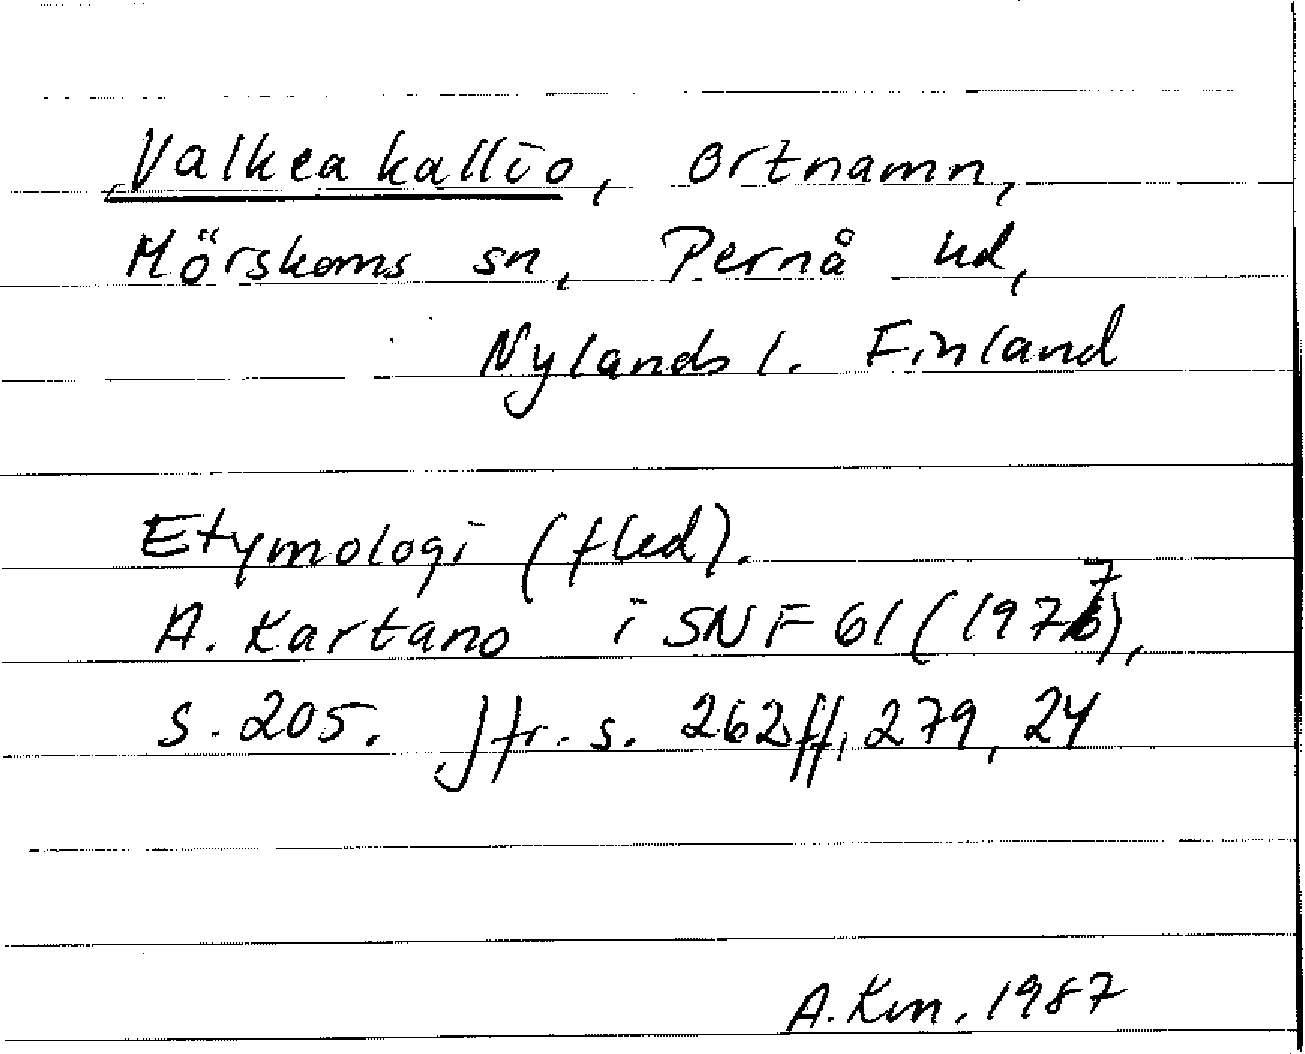 Valkeakallio, Ortnamn,
Mörskoms sn, Pernå hd,
Nylands l. Finland
Etymologi (fled).
A. Kartano i SNF 61 (1977),
s. 205. Jfr. s. 262ff, 279, 24
A. Km. 1987